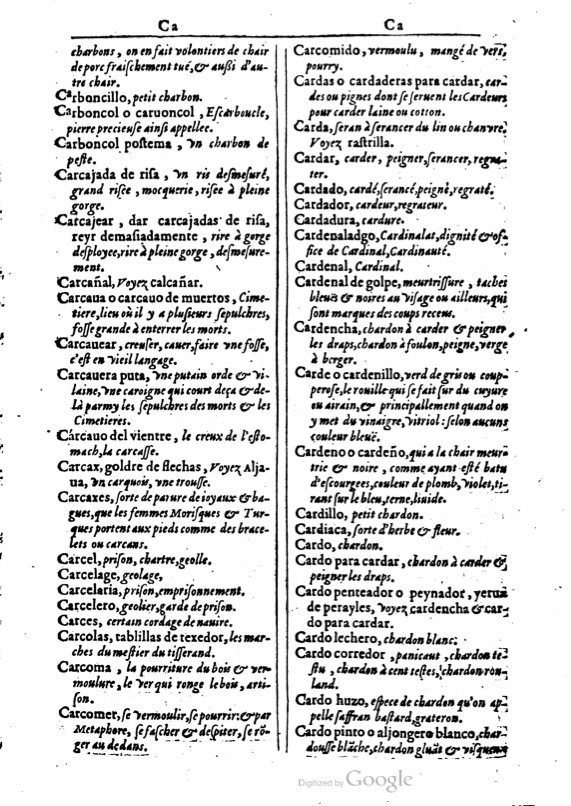 Ca
charbons, on en fait volontiers de chair
de porc fraischement tué, & außi d'au-
tre chair.
Carboncillo, petit charbon.
Carboncol o caruoncol, Escarboucle,
pierre precieuse ainsi appellee.
Carboncol postema, vn charbon de
peste.
Carcajada de risa, vn ris desmesuré,
grand risee, mocquerie, risee à pleine
gorge.
Carcajear, dar carcajadas de risa,
reyr demasiadamente, rire à gorge
desployee, rire à pleine gorge, desmesure-
ment.
Carcañal, Voyez calcañar.
Carcaua o carcauo de muertos, Cime-
tiere, lieu où il y a plusieurs sepulchres,
fosse grande à enterrer les morts.
Carcauear, creuser, cauer, faire vne fosse,
c'est en vieil langage.
Carcauera puta, vne putain orde & vi-
laine, vne caroigne qui court deça & de-
là parmy les sepulchres des morts & les
Cimetieres.
Cárcauo del vientre, le creux de l'esto-
mach, la carcasse.
Carcax, goldre de flechas, Voyez Alja-
ua, vn carquois, vne trousse.
Carcaxes, sorte de parure de ioyaux & ba-
gues, que les femmes Morisques & Tur-
ques portent aux pieds comme des brace-
lets ou carcans.
Carcel, prison, chartre, geolle.
Carcelage, geolage.
Carcelaria, prison, emprisonnement.
Carcelero, geolier, garde de prison.
Carces, certain cordage de nauire.
Carcolas, tablillas de texedor, les mar-
ches du mestier du tisserand.
Carcoma, la pourriture du bois & ver-
moulure, le ver qui ronge le bois, arti-
son.
Carcomer, se vermoulir, se pourrir: & par
Metaphore, se fascher & despiter, se rō-
ger au dedans.
Ca
Carcomido, vermoulu, mangé de vers,
pourry.
Cardas o cardaderas para cardar, car-
des ou pignes dont se seruent les Cardeurs
pour carder laine ou cotton.
Carda, seran à serancer du lin ou chanvre,
Voyez rastrilla.
Cardar, carder, peigner, serancer, regra-
ter.
Cardado, cardé, serancé, peigné, regraté.
Cardador, cardeur, regrateur.
Cardadura, cardure.
Cardenaladgo, Cardinalat, dignité & of-
fice de Cardinal, Cardinauté.
Cardenal, Cardinal.
Cardenal de golpe, meurtrissure, taches
bleuës & noires au visage ou ailleurs, qui
sont marques des coups recens.
Cardencha, chardon à carder & peigner
les draps, chardon à foulon, peigne, verge
à berger.
Carde o cardenillo, verd de gris ou coup-
perose, le rouille qui se fait sur du cuyure
ou airain, & principalement quand on
y met du vinaigre, vitriol: selon aucuns
couleur bleuë.
Cardeno o cardeño, qui a la chair meur-
trie & noire, comme ayant esté batu
d'escourgees, couleur de plomb, violet, ti-
rant sur le bleu, terne, liuide.
Cardillo, petit chardon.
Cardiaca, sorte d'herbe & fleur.
Cardo, chardon.
Cardo para cardar, chardon à carder &
peigner les draps.
Cardo penteador o peynador, yerua
de perayles, Voyez cardencha & car-
do para cardar.
Cardo lechero, chardon blanc.
Cardo corredor, panicaut, chardon te-
stu, chardon à cent testes, chardon rou-
land.
Cardo huzo, espece de chardon qu'on ap-
pelle saffran bastard, grateron.
Cardo pinto o aljongero blanco, char-
dousse blāche, chardon gluāt & visqueux
Digitized by Google